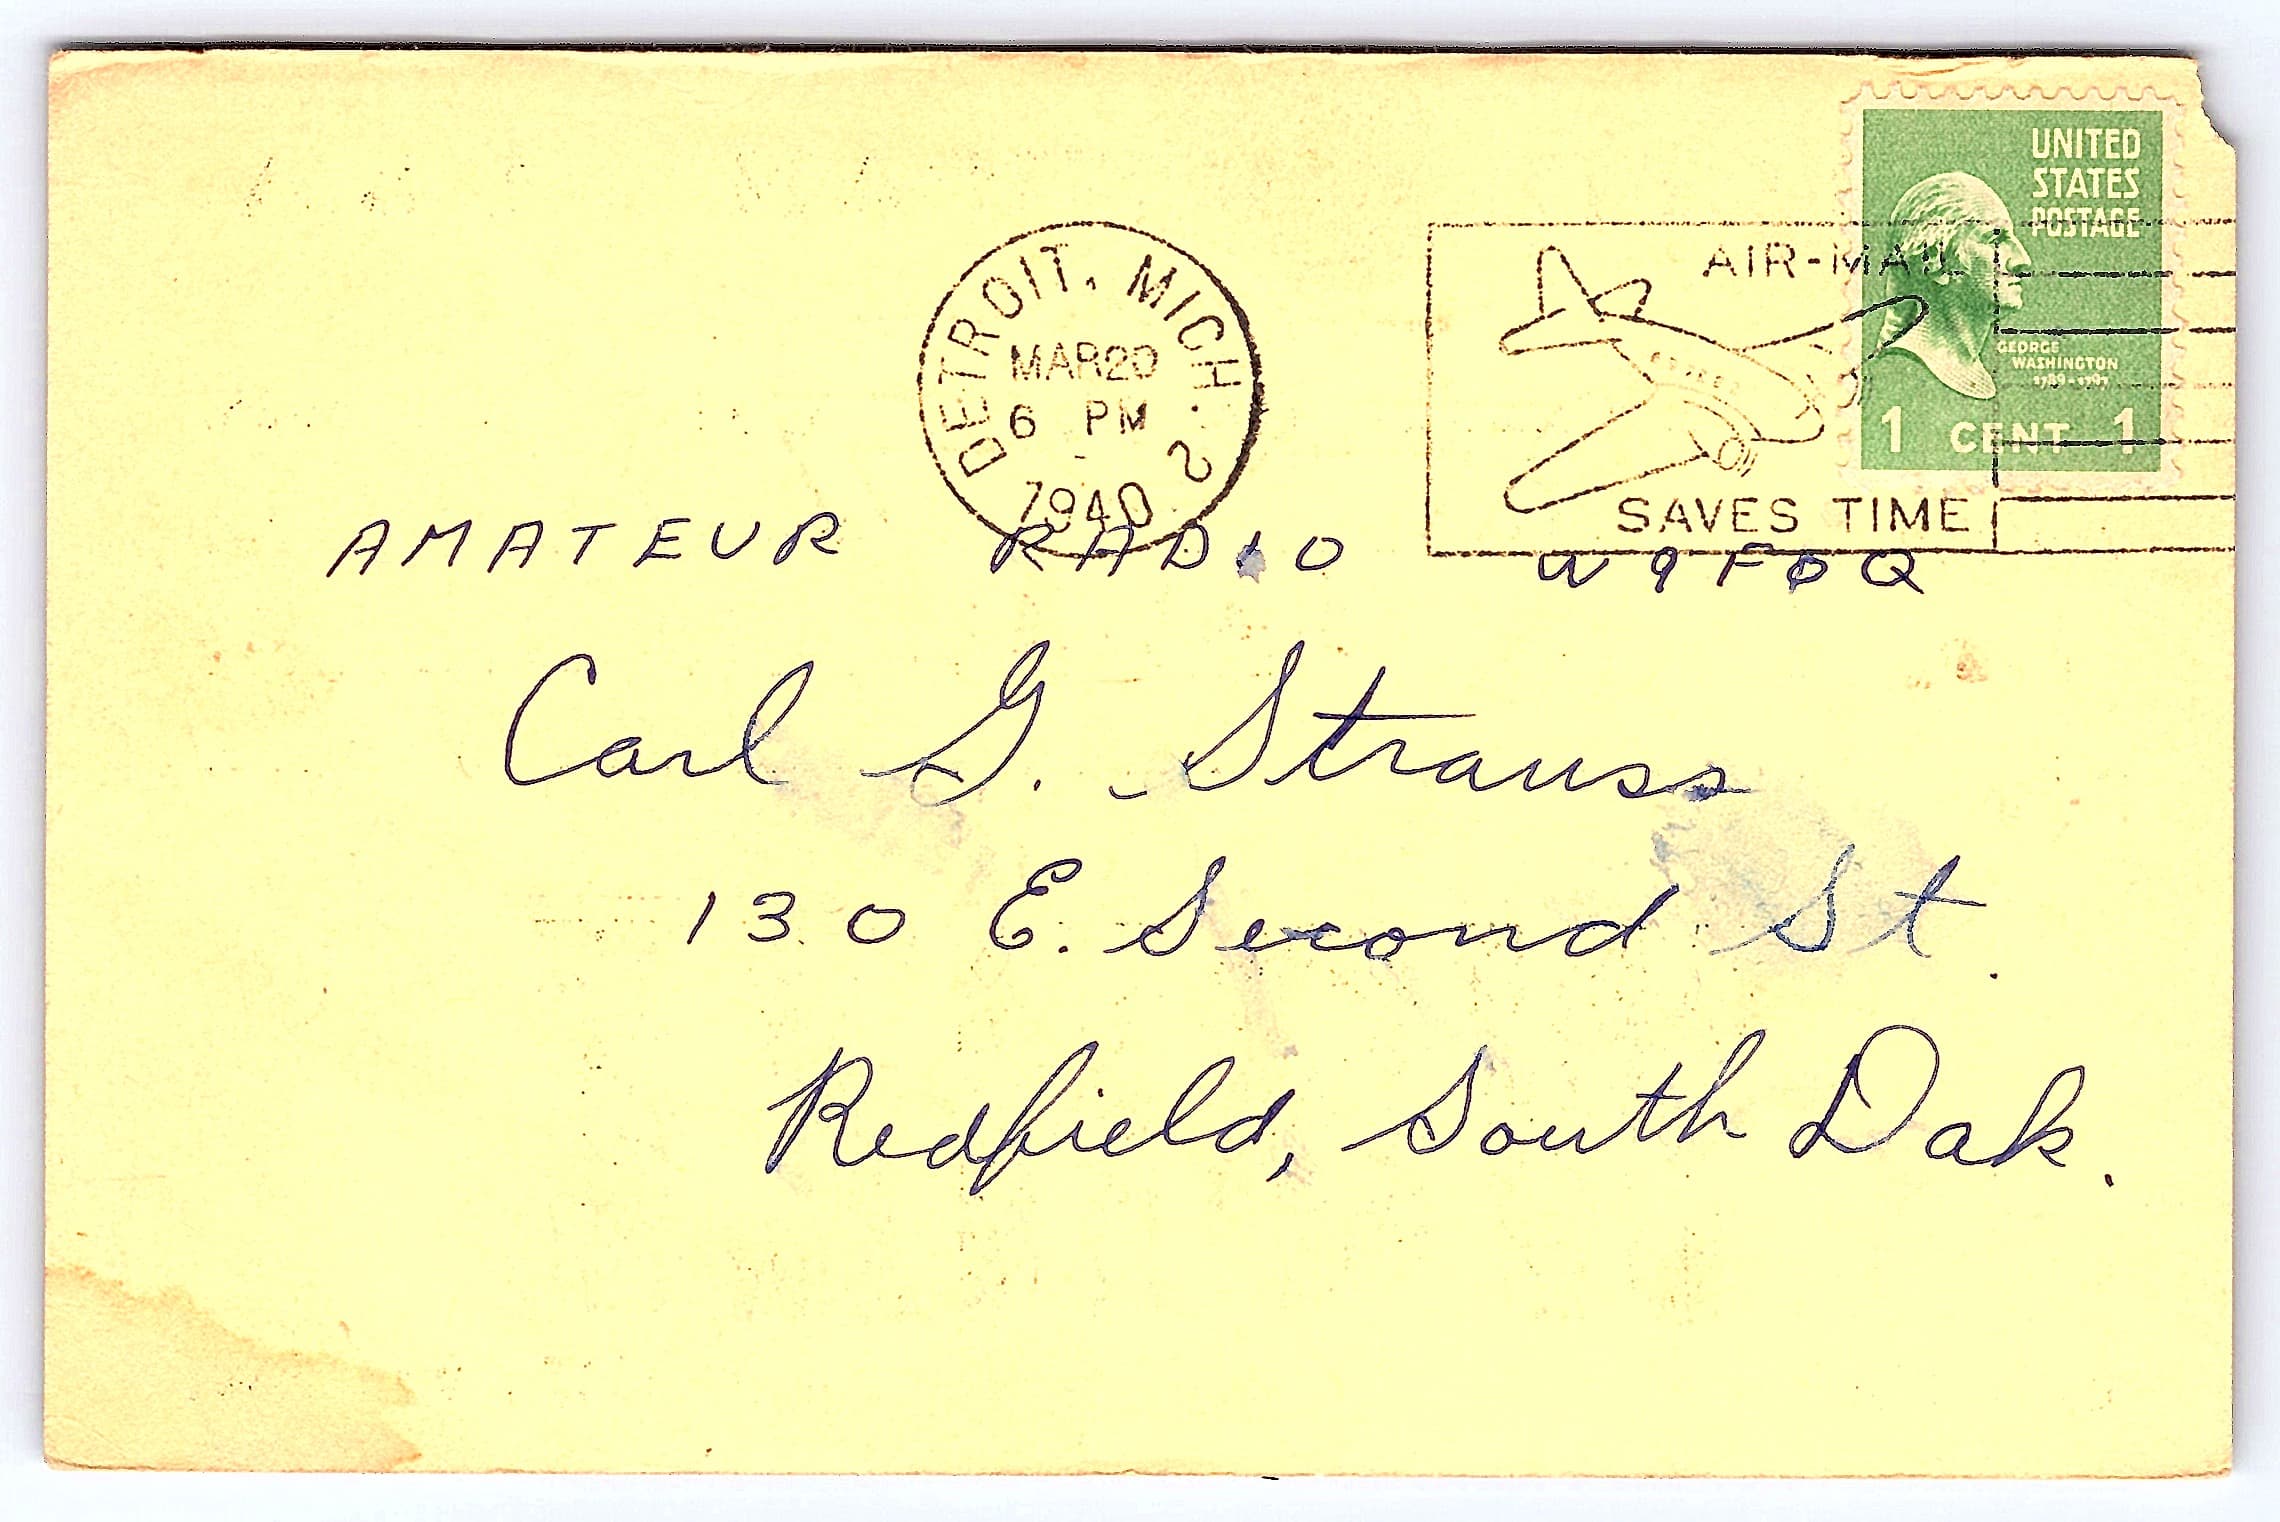 UNITED
STATES
POSTAGE
GEORGE
WASHINGTON
1789-1797
1 CENT 1
DETROIT, MICH. 2
MAR 20
6 PM
1940
AIR-MAIL
SAVES TIME
AMATEUR RADIO W9FØQ
Carl G. Strauss
130 E. Second St.
Redfield, South Dak.